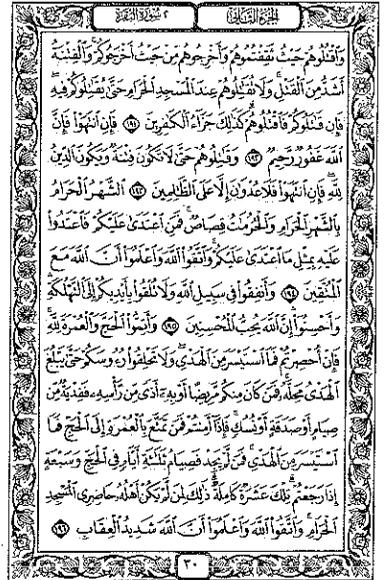 الجزء الثاني
٢ سورة البقرة
وَاقْتُلُوهُمْ حَيْثُ ثَقِفْتُمُوهُمْ وَأَخْرِجُوهُم مِّنْ حَيْثُ أَخْرَجُوكُمْ وَالْفِتْنَةُ
أَشَدُّ مِنَ الْقَتْلِ وَلَا تُقَاتِلُوهُمْ عِندَ الْمَسْجِدِ الْحَرَامِ حَتَّىٰ يُقَاتِلُوكُمْ فِيهِ
فَإِن قَاتَلُوكُمْ فَاقْتُلُوهُمْ كَذَٰلِكَ جَزَاءُ الْكَافِرِينَ ١٩١ فَإِنِ انتَهَوْا فَإِنَّ
اللَّهَ غَفُورٌ رَّحِيمٌ ١٩٢ وَقَاتِلُوهُمْ حَتَّىٰ لَا تَكُونَ فِتْنَةٌ وَيَكُونَ الدِّينُ
لِلَّهِ فَإِنِ انتَهَوْا فَلَا عُدْوَانَ إِلَّا عَلَى الظَّالِمِينَ ١٩٣ الشَّهْرُ الْحَرَامُ
بِالشَّهْرِ الْحَرَامِ وَالْحُرُمَاتُ قِصَاصٌ فَمَنِ اعْتَدَىٰ عَلَيْكُمْ فَاعْتَدُوا
عَلَيْهِ بِمِثْلِ مَا اعْتَدَىٰ عَلَيْكُمْ وَاتَّقُوا اللَّهَ وَاعْلَمُوا أَنَّ اللَّهَ مَعَ
الْمُتَّقِينَ ١٩٤ وَأَنفِقُوا فِي سَبِيلِ اللَّهِ وَلَا تُلْقُوا بِأَيْدِيكُمْ إِلَى التَّهْلُكَةِ
وَأَحْسِنُوا إِنَّ اللَّهَ يُحِبُّ الْمُحْسِنِينَ ١٩٥ وَأَتِمُّوا الْحَجَّ وَالْعُمْرَةَ لِلَّهِ
فَإِنْ أُحْصِرْتُمْ فَمَا اسْتَيْسَرَ مِنَ الْهَدْيِ وَلَا تَحْلِقُوا رُءُوسَكُمْ حَتَّىٰ يَبْلُغَ
الْهَدْيُ مَحِلَّهُ فَمَن كَانَ مِنكُم مَّرِيضًا أَوْ بِهِ أَذًى مِّن رَّأْسِهِ فَفِدْيَةٌ مِّن
صِيَامٍ أَوْ صَدَقَةٍ أَوْ نُسُكٍ فَإِذَا أَمِنتُمْ فَمَن تَمَتَّعَ بِالْعُمْرَةِ إِلَى الْحَجِّ فَمَا
اسْتَيْسَرَ مِنَ الْهَدْيِ فَمَن لَّمْ يَجِدْ فَصِيَامُ ثَلَاثَةِ أَيَّامٍ فِي الْحَجِّ وَسَبْعَةٍ
إِذَا رَجَعْتُمْ تِلْكَ عَشَرَةٌ كَامِلَةٌ ذَٰلِكَ لِمَن لَّمْ يَكُنْ أَهْلُهُ حَاضِرِي الْمَسْجِدِ
الْحَرَامِ وَاتَّقُوا اللَّهَ وَاعْلَمُوا أَنَّ اللَّهَ شَدِيدُ الْعِقَابِ ١٩٦
٣٠